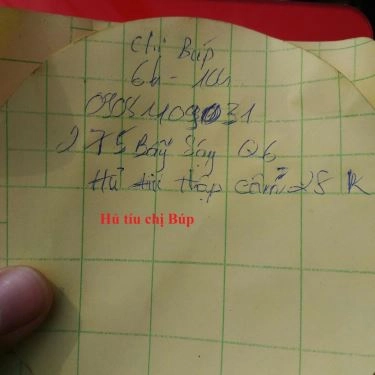 Chị Búp
6h - 10h
275 Bãy Sậy Q6
Hủ tiú thập cẩm 25 K
Hủ tíu chị Búp